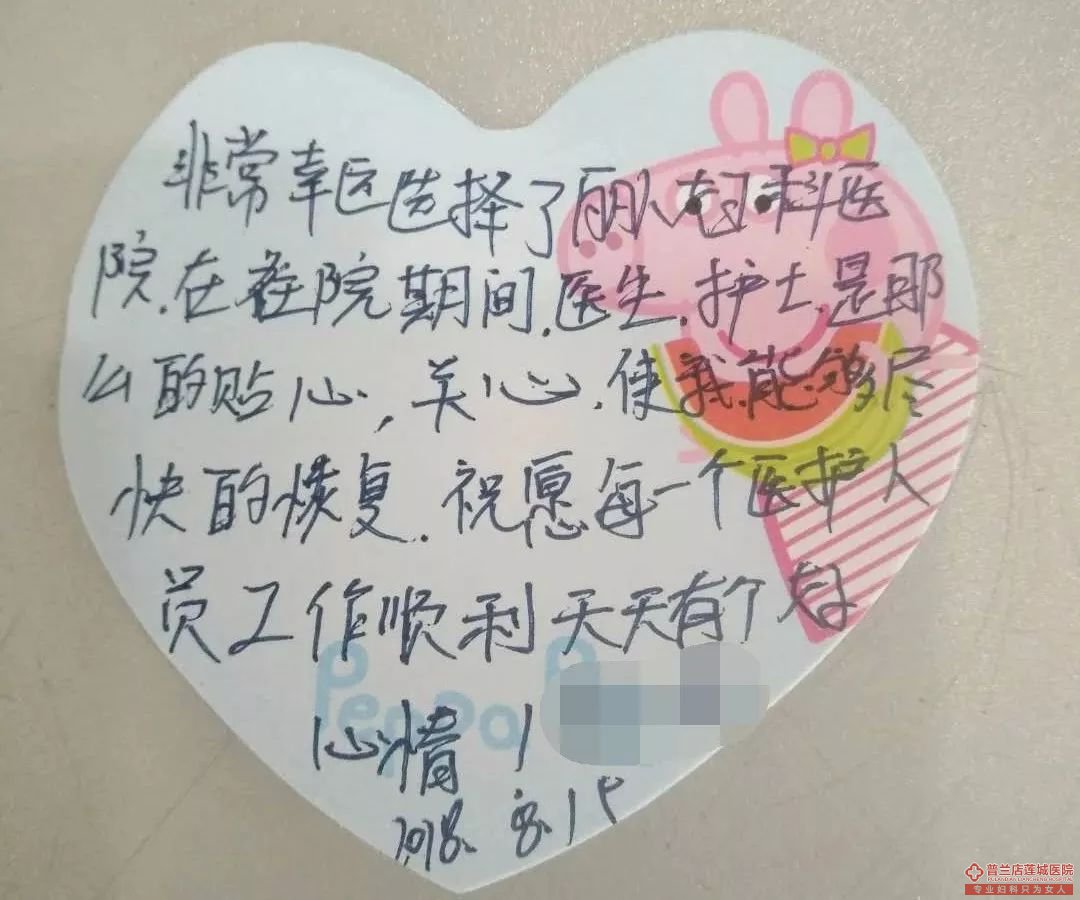 非常幸医选择了丽人妇科医
院.在住院期间.医生.护士.是那
么的贴心,关心.使我能够尽
快的恢复.祝愿每一个医护人
员工作顺利天天有个好
心情!
Peppa P
2018.8.15
普兰店莲城医院
PULANDIAN LIANCHENG HOSPITAL
专业妇科只为女人